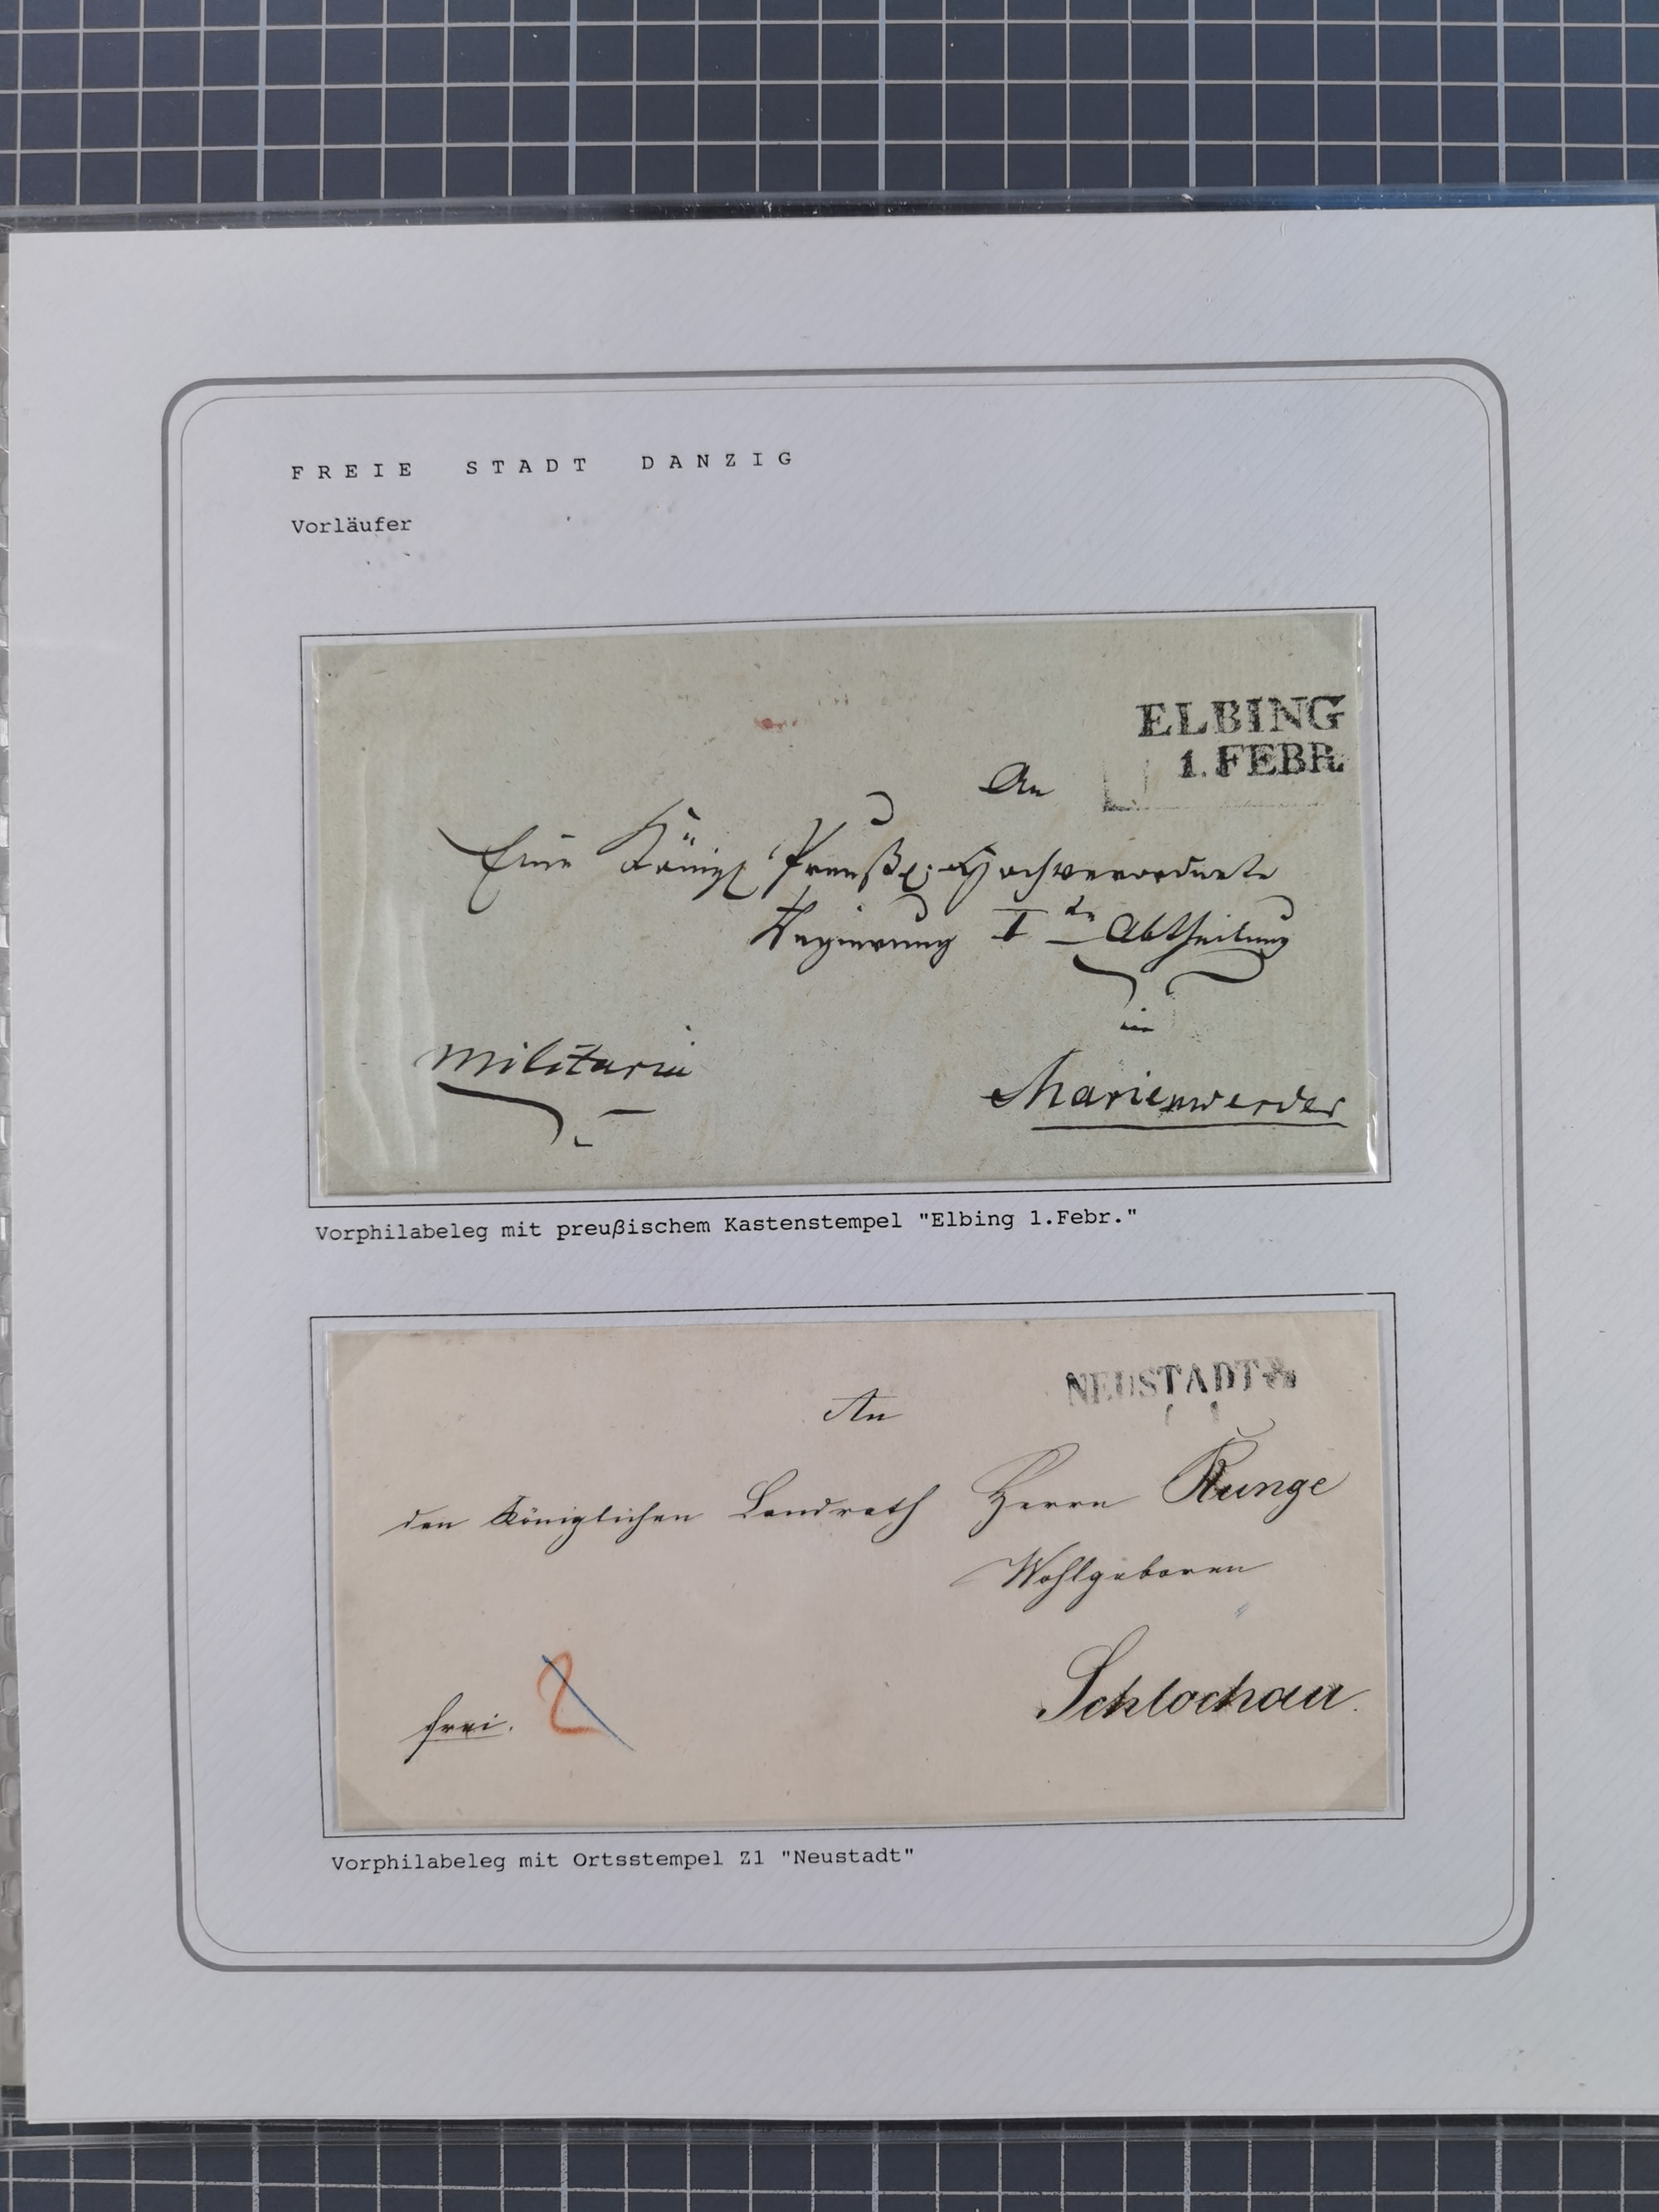 FREIE STADT DANZIG
Vorläufer
ELBING
1. FEBR.
An
Eine Königl Preuß. Hochverordnete
Regierung I Abtheilung
in
Militaria
Marienwerder
Vorphilabeleg mit preußischem Kastenstempel "Elbing 1.Febr."
NEUSTADT
An
den Königlichen Landrath Herrn Runge
Wohlgeboren
Schlochau.
frei. 2
Vorphilabeleg mit Ortsstempel Z1 "Neustadt"